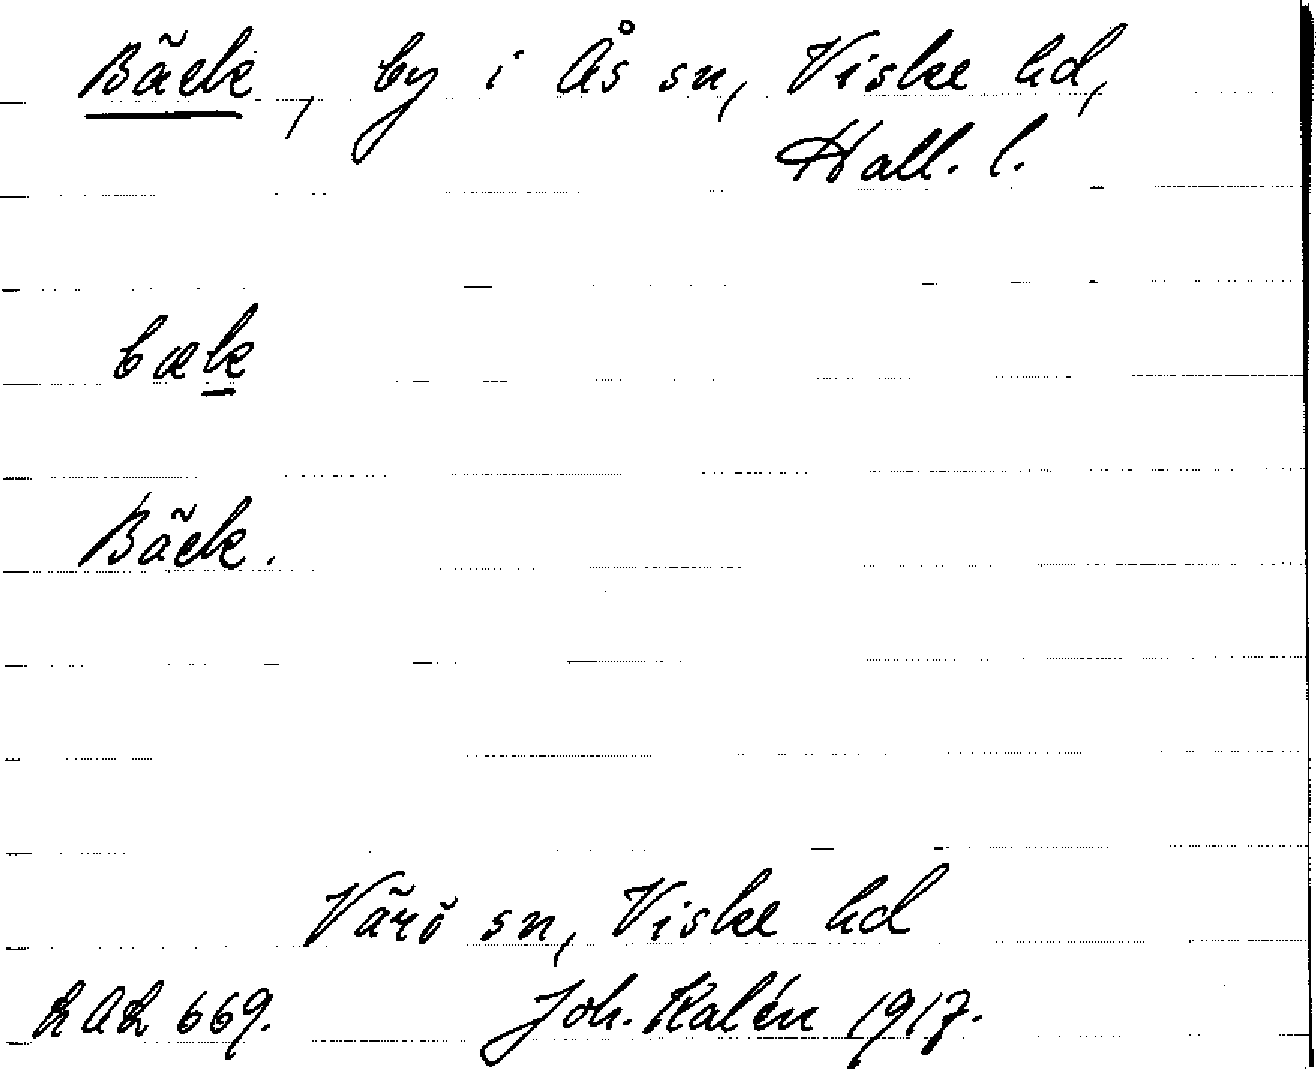 Bäck, by i Ås sn, Viske hd,
Hall. l.
bæk
Bäck.
Värö sn, Viske hd
LAL 669. Joh. Kalén 1917.